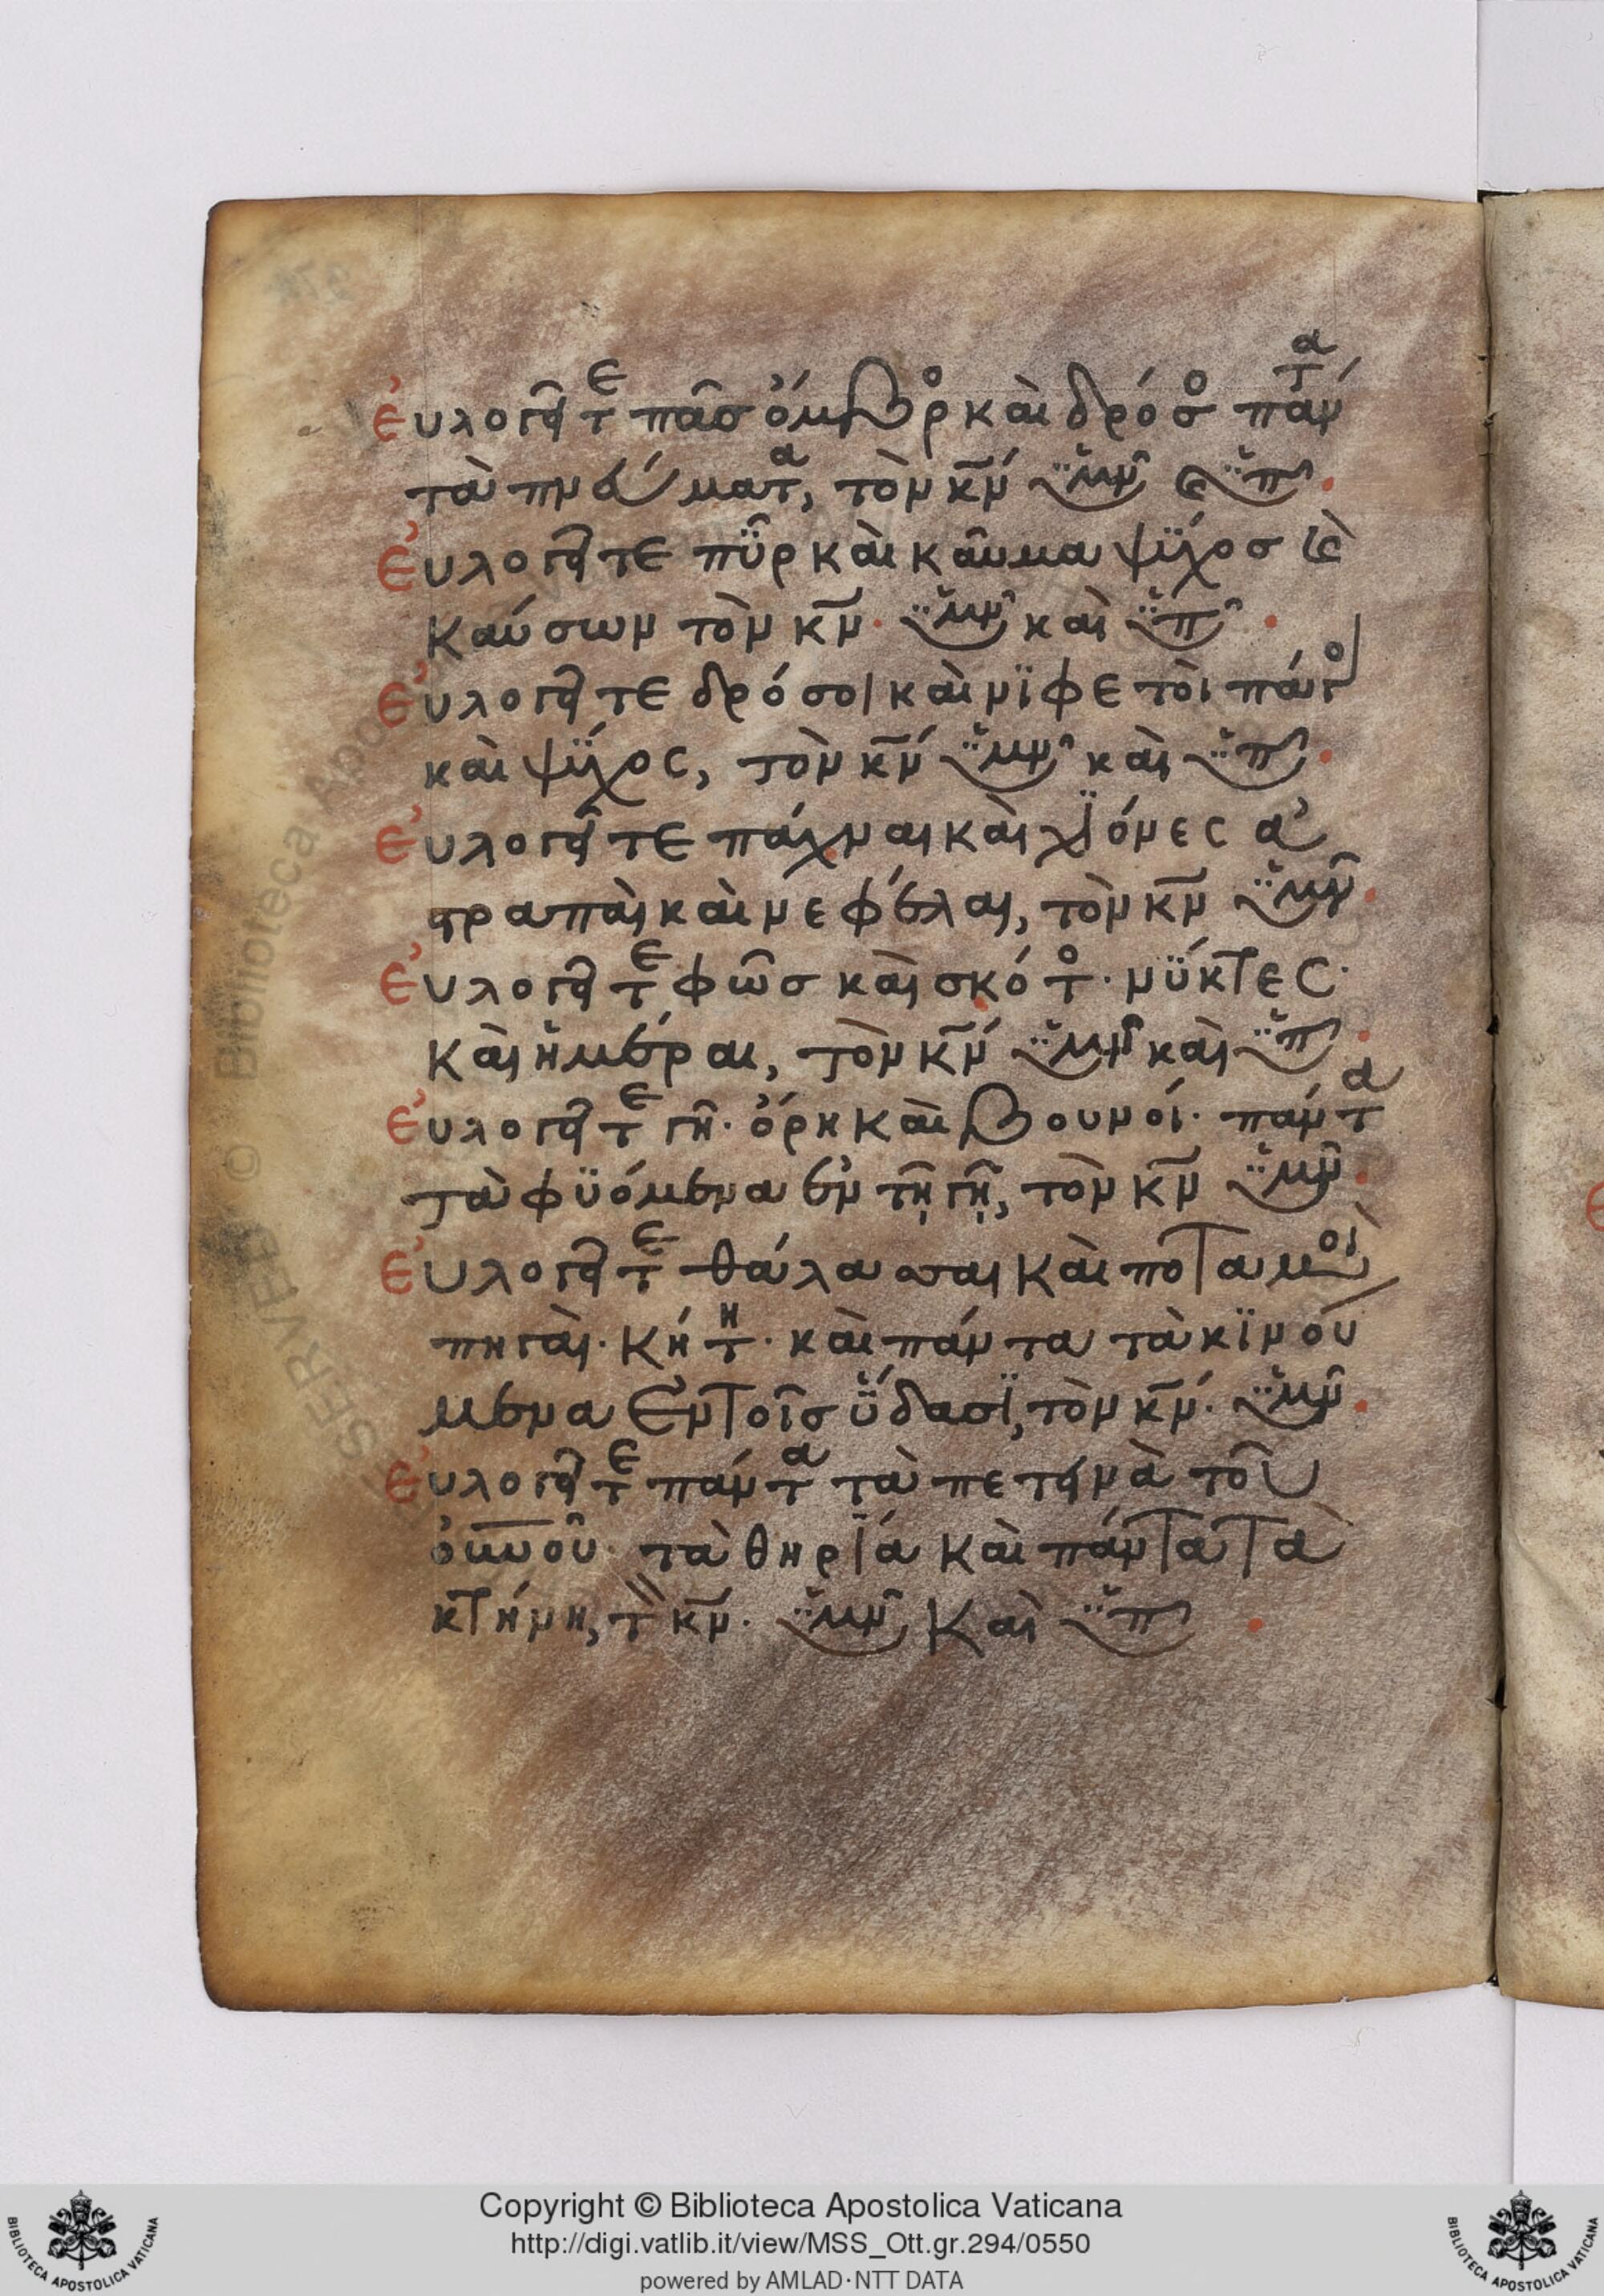 Εὐλογεῖτε πᾶσ ὄμβρο καὶ δρόσο πάντα
τὰ πνεύματα, τὸν κν ὑμν κ ὑπ
Εὐλογεῖτε πῦρ καὶ καῦμα ψύχοσ κὲ
Καύσων τὸν κν· ὑμν καὶ ὑπ
Εὐλογεῖτε δρόσοι καὶ νϊφετοὶ πάγο
καὶ ψύχος, τὸν κν ὑμν καὶ ὑπ
Εὐλογεῖτε πάχναι καὶ χϊόνες ἀ
στραπαὶ καὶ νεφέλαι, τὸν κν ὑμν
Εὐλογεῖτε φῶσ καὶ σκότο· νϋκτες·
Καὶ ἡμέραι, τὸν κν ὑμν καὶ ὑπ
Εὐλογεῖτε γῆ· ὄρη καὶ βουνοί· πάντα
τὰ φϋόμενα ἐν τῆ γῆ, τὸν κν ὑμν
Εὐλογεῖτε θάλασσαι Καὶ ποταμοὶ
πηγαὶ· Κήτη· καὶ πάντα τὰ κϊνού
μενα Ἐν τοῖσ ὕδασϊ, τὸν κν· ὑμν
Εὐλογεῖτε πάντα τὰ πετεινὰ τοῦ
οὐνοῦ· τὰ θηρϊά Καὶ πάντα τὰ
κτήνη, τ κν· ὑμν Καὶ ὑπ
© Biblioteca Apostolica Vaticana
Copyright © Biblioteca Apostolica Vaticana
http://digi.vatlib.it/view/MSS_Ott.gr.294/0550
powered by AMLAD·NTT DATA
BIBLIOTECA APOSTOLICA VATICANA
BIBLIOTECA APOSTOLICA VATICANA